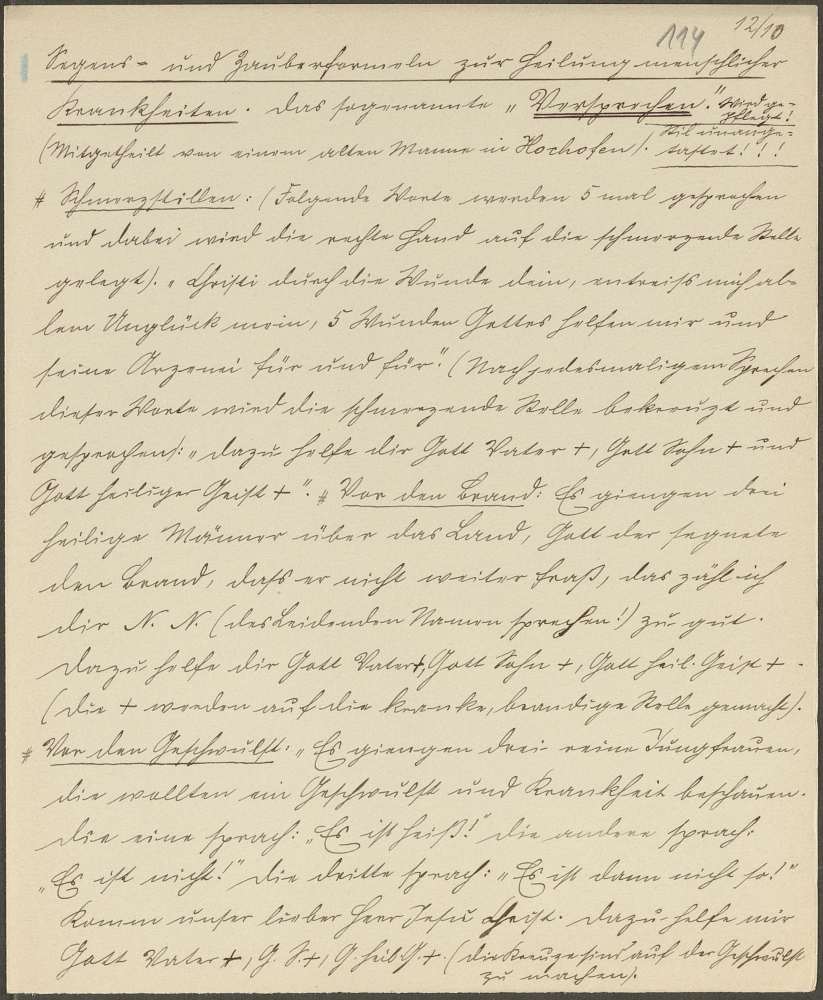 114 12/10
Segens- und Zauberformeln zur Heilung menschlicher
Krankheiten. Das sogenannte „Versprechen." Wird ge-
pflegt!
(Mitgetheilt von einem alten Manne in Hochofen). Stil unange-
tastet!!!
# Schmerzstillen: (Folgende Worte werden 5 mal gesprochen
und dabei wird die rechte Hand auf die schmerzende Stelle
gelegt). „Christi durch die Wunde dein, entreiß mich al-
lem Unglück mein, 5 Wunden Gottes helfen mir und
seine Arzenei für und für". (Nach jedesmaligem Sprechen
dieser Worte wird die schmerzende Stelle bekreuzt und
gesprochen): „dazu helfe dir Gott Vater +, Gott Sohn + und
Gott heiliger Geist +". # Vor den Brand: Es giengen drei
heilige Männer über das Land, Gott der segnete
den Brand, daß er nicht weiter fraß, das zähl ich
dir N. N. (des Leidenden Namen sprechen!) zu gut.
Dazu helfe dir Gott Vater +, Gott Sohn +, Gott heil. Geist +.
(Die + werden auf die kranke, brandige Stelle gemacht).
# Vor den Geschwulst: „Es giengen drei reine Jungfrauen,
die wollten ein Geschwulst und Krankheit beschauen.
Die eine sprach: „Es ist heiß!" Die andere sprach:
„Es ist nicht!" Die dritte sprach: „Es ist dann nicht so!"
Komm unser lieber Herr Jesu Christ. Dazu helfe mir
Gott Vater +, G. S. +, G. heil. G. +. (Die Kreuze sind auf der Geschwulst
zu machen).